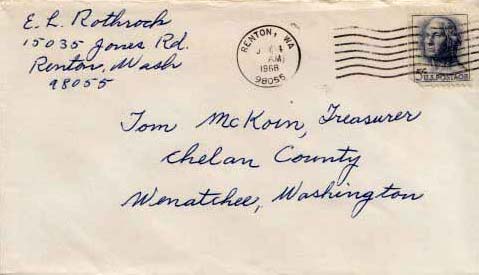 E. L. Rothrock
15035 Jones Rd.
Renton, Wash
98055
RENTON, WA
AM
1968
98055
5¢
U.S. POSTAGE
Tom McKoin, Treasurer
Chelan County
Wenatchee, Washington